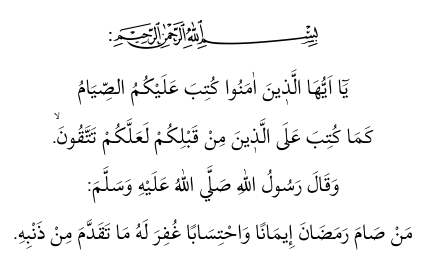 بِسْمِ اللّٰهِ الرَّحْمٰنِ الرَّحِيمِ:
يَٓا اَيُّهَا الَّذ۪ينَ اٰمَنُوا كُتِبَ عَلَيْكُمُ الصِّيَامُ
كَمَا كُتِبَ عَلَى الَّذ۪ينَ مِنْ قَبْلِكُمْ لَعَلَّكُمْ تَتَّقُونَۙ.
وَقَالَ رَسُولُ اللّٰهِ صَلَّي اللّٰهُ عَلَيْهِ وَسَلَّمَ:
مَنْ صَامَ رَمَضَانَ إِيمَانًا وَاحْتِسَابًا غُفِرَ لَهُ مَا تَقَدَّمَ مِنْ ذَنْبِهِ.